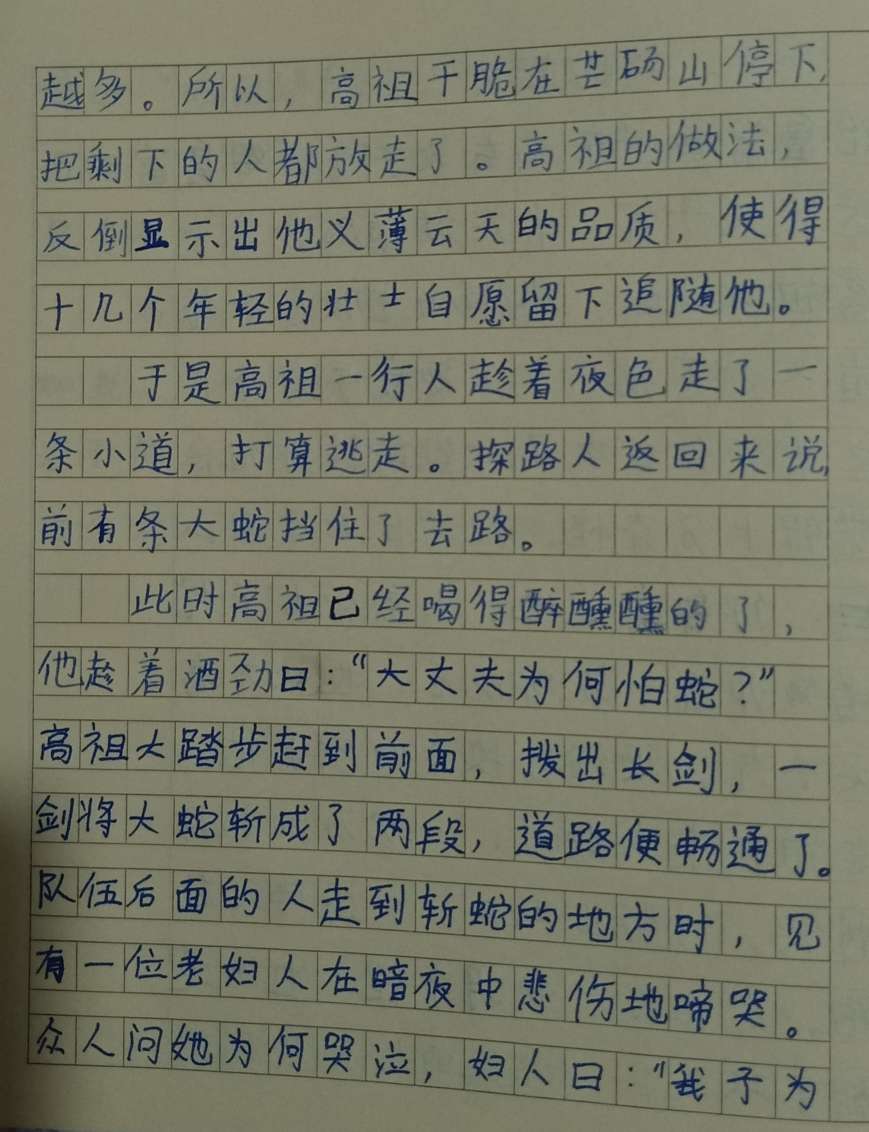 越多。所以，高祖干脆在芒砀山停下，
把剩下的人都放走了。高祖的做法，
反倒显示出他义薄云天的品质，使得
十几个年轻的壮士自愿留下追随他。
于是高祖一行人趁着夜色走了一
条小道，打算逃走。探路人返回来说，
前有条大蛇挡住了去路。
此时高祖已经喝得醉醺醺的了，
他趁着酒劲曰：“大丈夫为何怕蛇？”
高祖大踏步赶到前面，拨出长剑，一
剑将大蛇斩成了两段，道路便畅通了。
队伍后面的人走到斩蛇的地方时，见
有一位老妇人在暗夜中悲伤地啼哭。
众人问她为何哭泣，妇人曰：“我子为